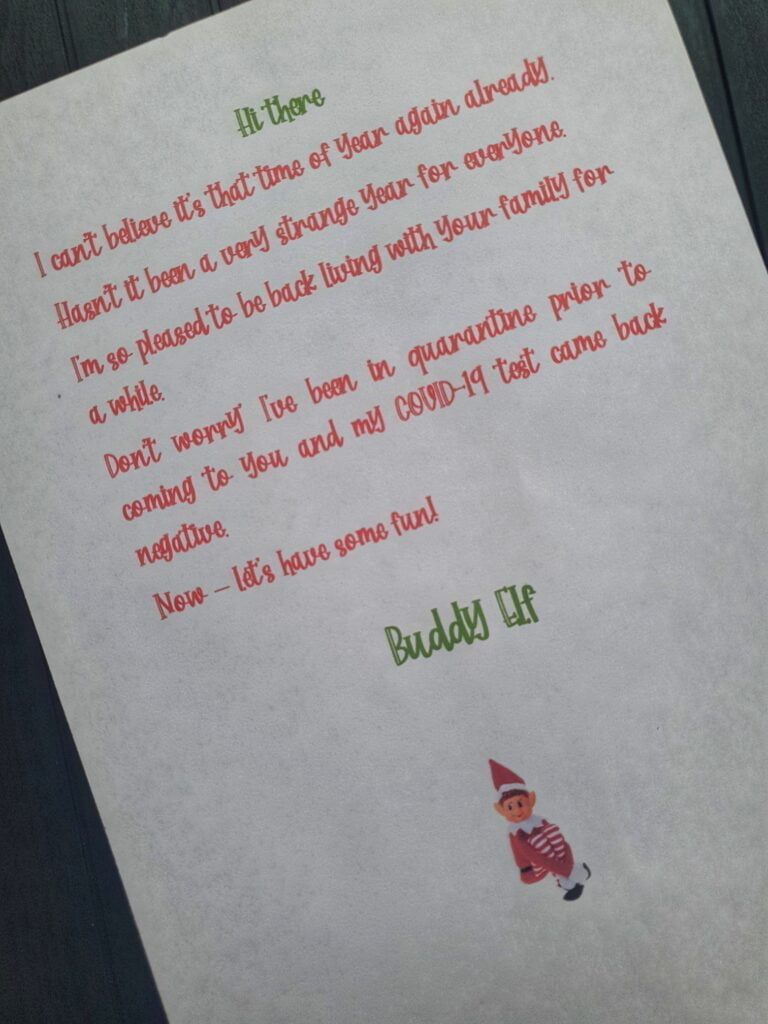 Hi there
I can't believe it's that time of year again already.
Hasn't it been a very strange year for everyone.
I'm so pleased to be back living with your family for
a while.
Don't worry I've been in quarantine prior to
coming to you and my COVID-19 test came back
negative.
Now – let's have some fun!
Buddy Elf